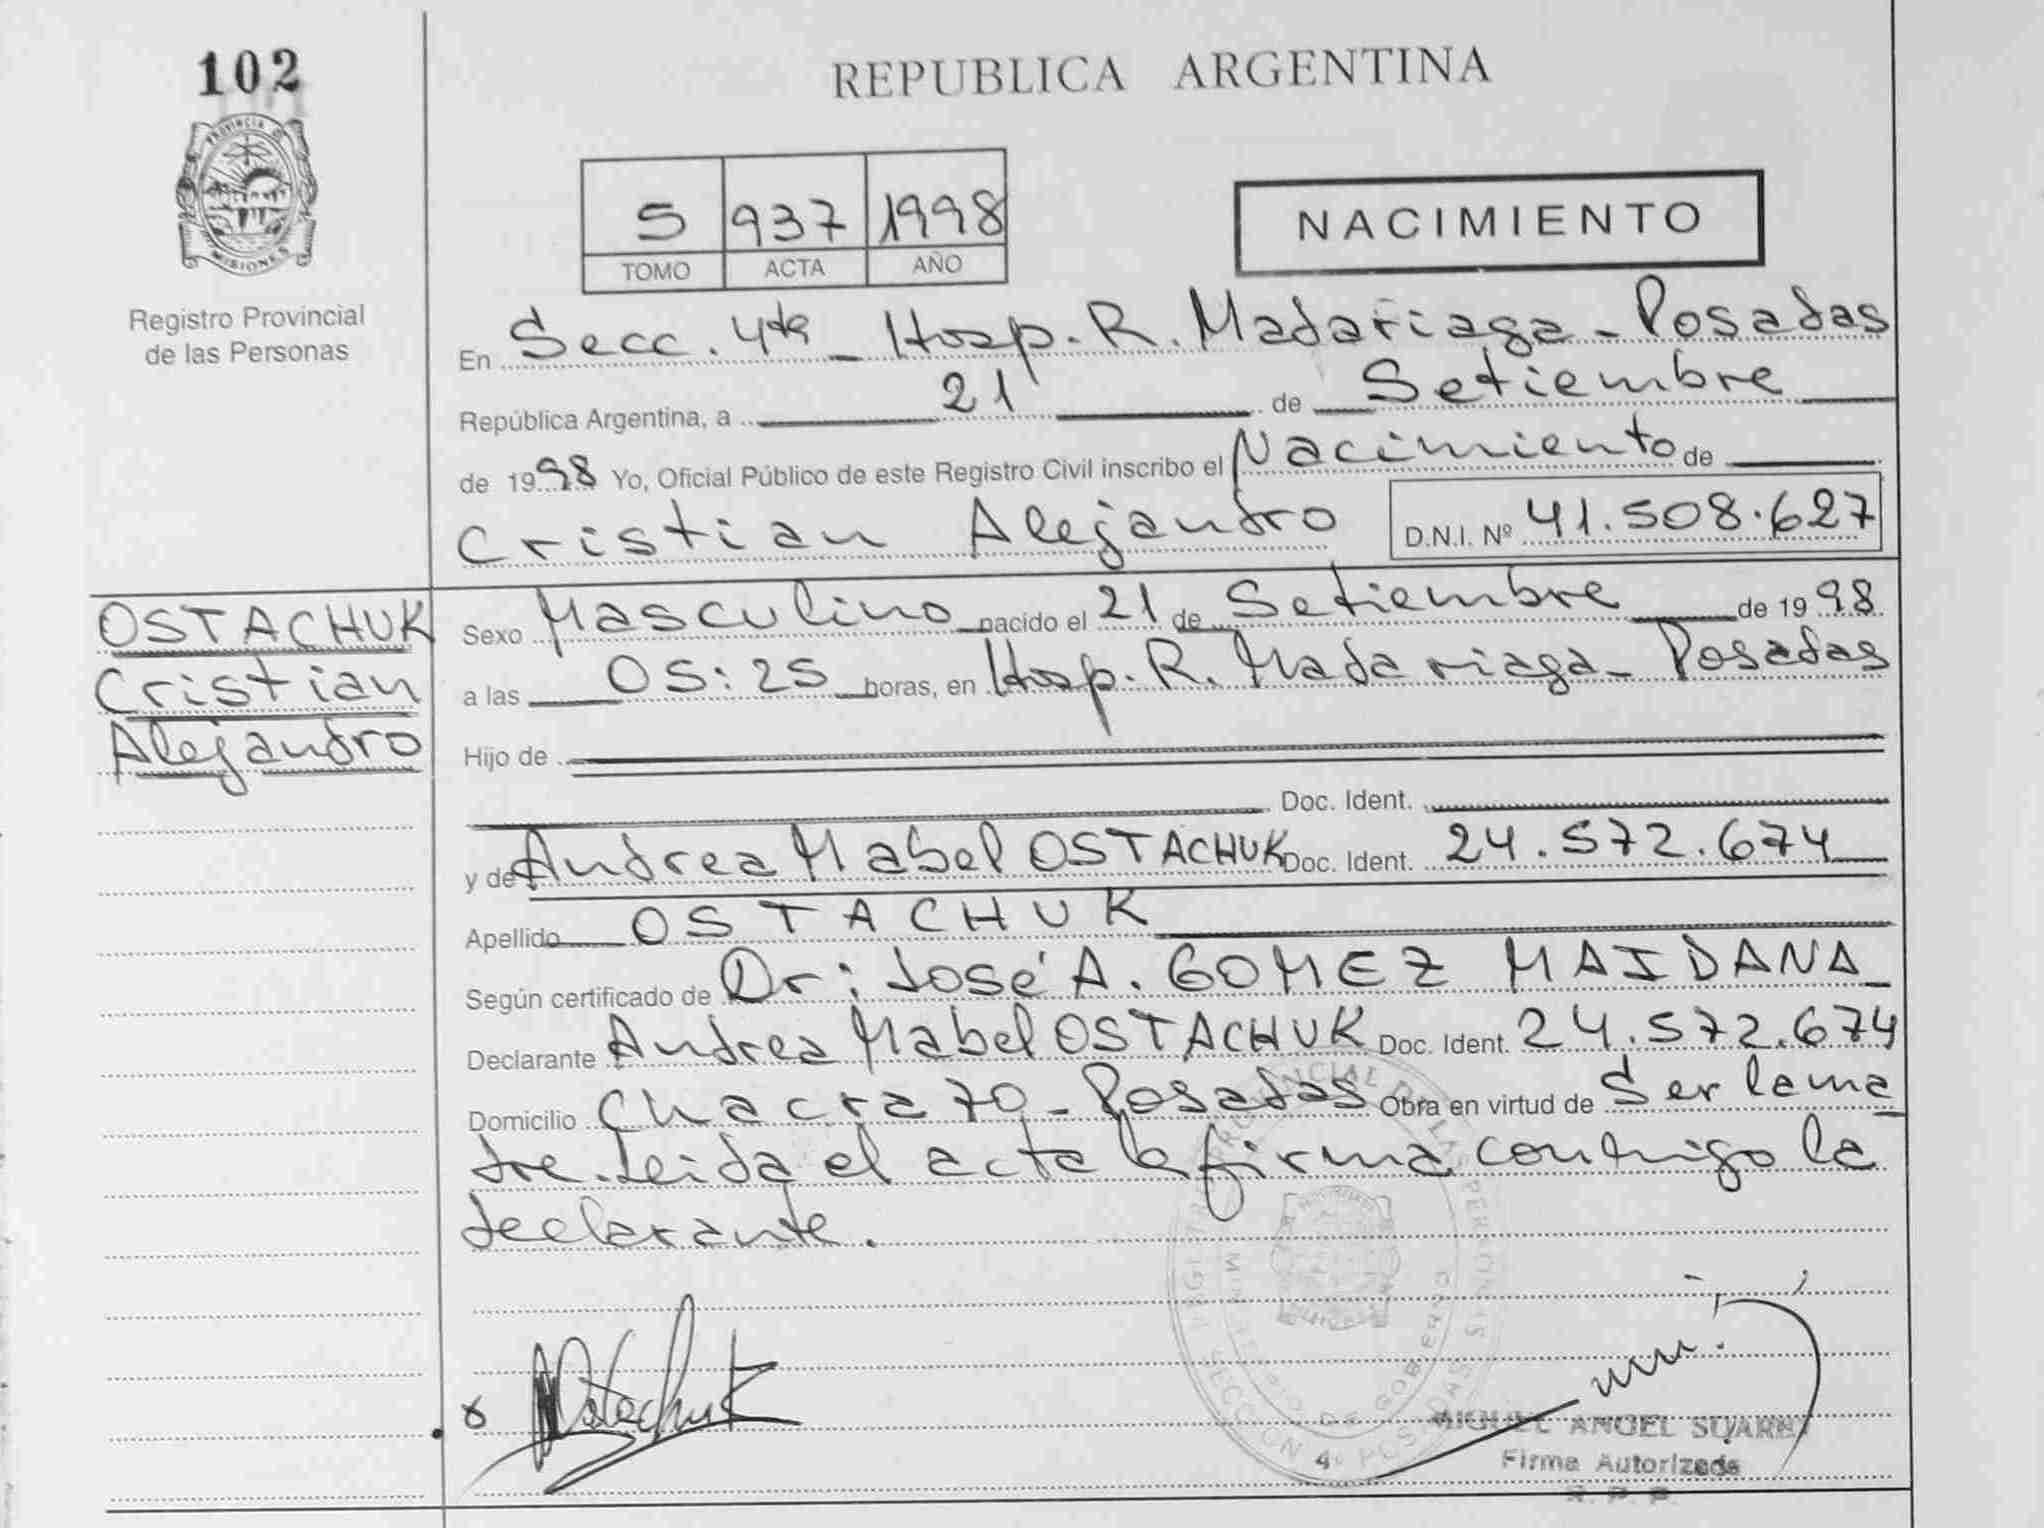 102
REPUBLICA ARGENTINA
PROVINCIA DE
MISIONES
Registro Provincial
de las Personas
5 937 1998
TOMO ACTA AÑO
NACIMIENTO
En Secc. 4ta _ Hosp. R. Madariaga - Posadas
República Argentina, a 21 de Setiembre
de 1998 Yo, Oficial Público de este Registro Civil inscribo el Nacimiento de
Cristian Alejandro D.N.I. Nº 41.508.627
OSTACHUK
Cristian
Alejandro
Sexo Masculino nacido el 21 de Setiembre de 1998
a las 05:25 horas, en Hosp. R. Madariaga - Posadas
Hijo de
Doc. Ident.
y de Andrea Mabel OSTACHUK Doc. Ident. 24.572.674
Apellido OSTACHUK
Según certificado de Dr: José A. GOMEZ MAIDANA
Declarante Andrea Mabel OSTACHUK Doc. Ident. 24.572.674
Domicilio Chacra 70 - Posadas Obra en virtud de Ser la ma
dre. Leida el acta la firma conmigo la
declarante.
Ostachuk
MIGUEL ANGEL SUAREZ
Firma Autorizada
R. P. P.